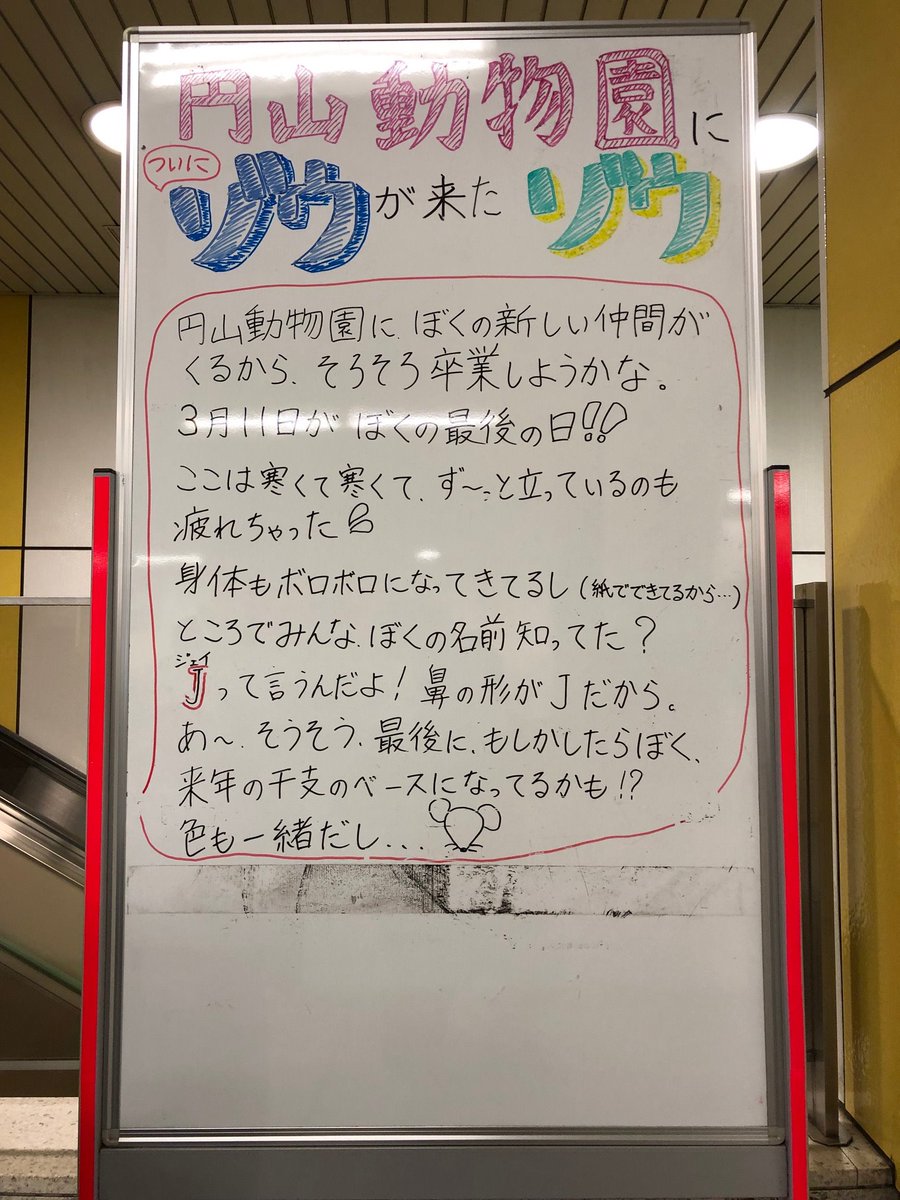 円山動物園に
ついに
ゾウが来たゾウ
円山動物園に、ぼくの新しい仲間が
くるから、そろそろ卒業しようかな。
3月11日が ぼくの最後の日!!
ここは寒くて寒くて、ず〜っと立っているのも
疲れちゃった
身体もボロボロになってきてるし(紙でできてるから…)
ところでみんな、ぼくの名前知ってた?
ジェイ
Jって言うんだよ! 鼻の形がJだから。
あ〜、そうそう、最後に、もしかしたらぼく、
来年の干支のベースになってるかも!?
色も一緒だし...